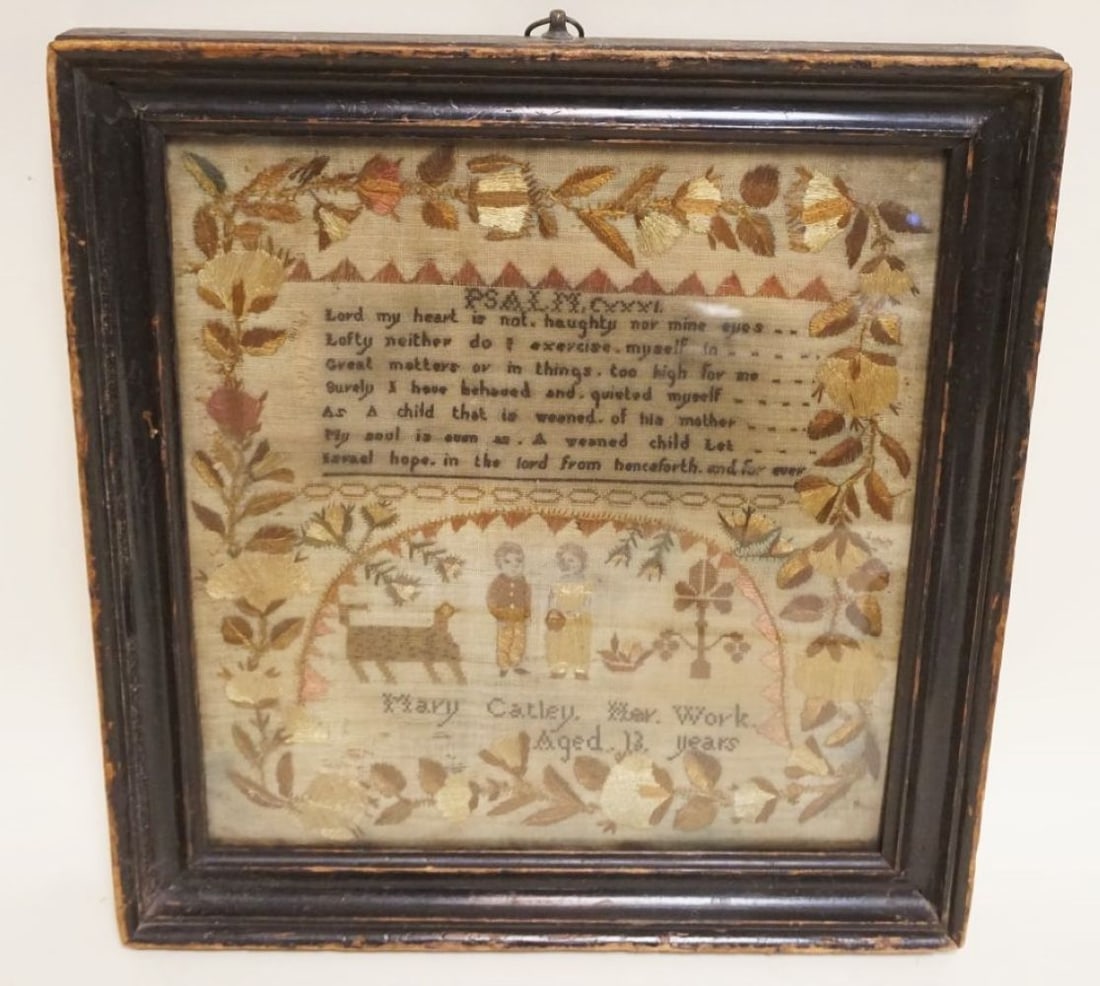 PSALM, CXXXI.
Lord my heart is not. haughty nor mine eyes
Lofty neither do I exercise. myself in
Great matters or in things. too high for me
Surely I have behaved and. quieted myself
As A child that is weaned. of his mother
My soul is even as. A weaned child Let
Israel hope. in the lord from henceforth. and for ever
Mary Catley. Her. Work.
Aged. 13. years